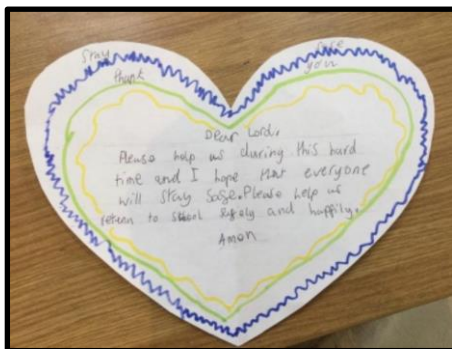 Stay safe
thank you
Dear Lord,
Please help us during this hard
time and I hope that everyone
will stay safe. Please help us
return to school safely and happily.
Amen